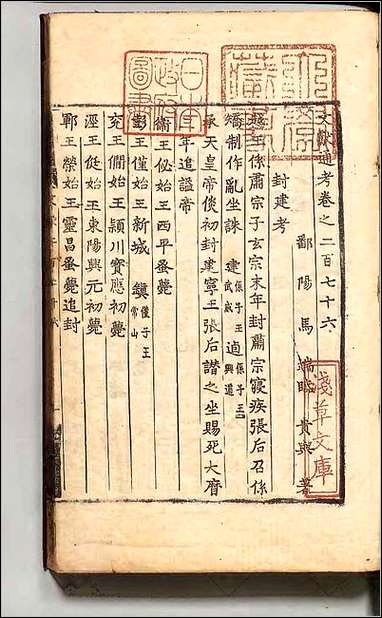 文獻通考卷之二百七十六
鄱陽馬 端臨 貴與 著
封建考
越王係肅宗子玄宗末年封肅宗寑疾張后召係
矯制作亂坐誅 建係子王武威 逌係子王興道
承天皇帝倓初封建寧王張后譖之坐賜死大曆
年追謚帝
衞王佖始王西平蚤薨
彭王僅始王新城 鎮僅子王常山
兗王僩始王潁川寶應初薨
涇王侹始王東陽興元初薨
鄆王榮始王靈昌蚤薨追封
淺草文庫
圖書